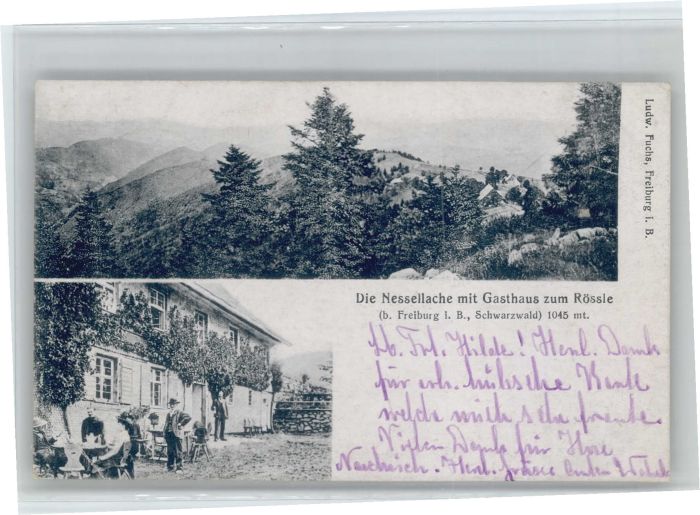 Ludw. Fuchs, Freiburg i. B.
Die Nessellache mit Gasthaus zum Rössle
(b. Freiburg i. B., Schwarzwald) 1045 mt.
Lb. Frl. Hilde! Herzl. Dank
für erh. hübsche Karte
welche mich sehr freute.
Vielen Dank für Ihre
Herzl. Grüsse